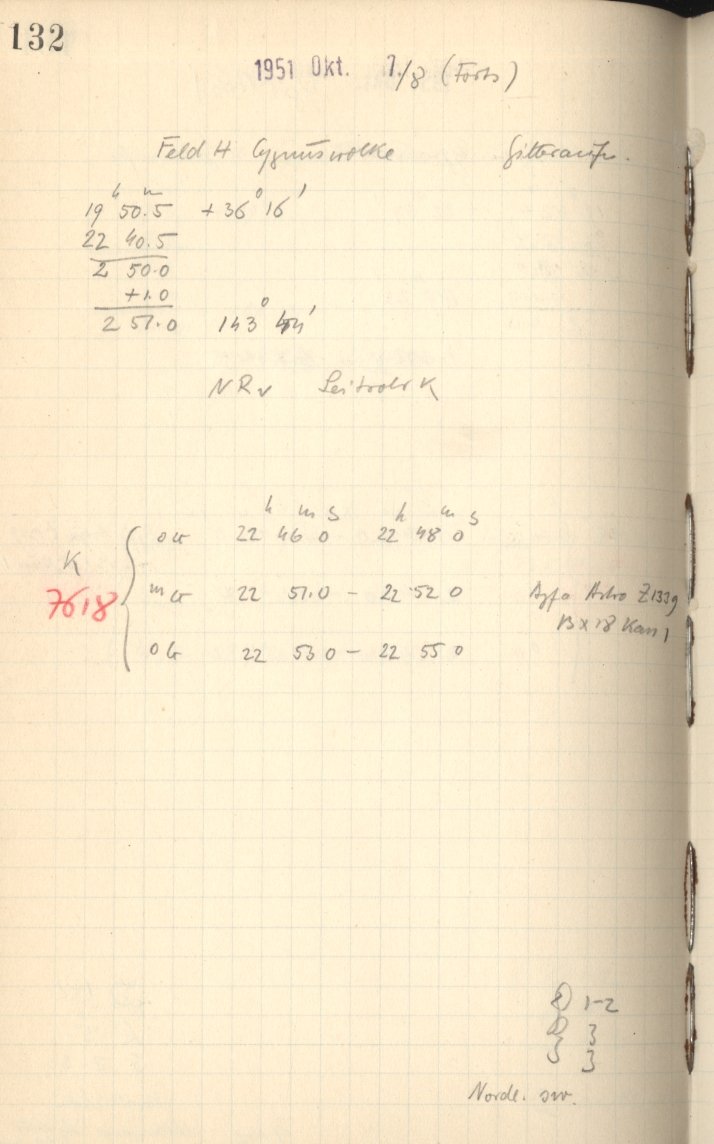 132
1951 Okt. 7./8 (Forts)
Feld 4 Cygnuswolke Gitteraufn.
h m
19 50.5 + 36° 16'
22 40.5
2 50.0
+1.0
2 51.0 143° 44'
N R v Leitrohr K
h m s h m s
o Gr 22 46 0 22 48 0
K
7618
m Gr 22 51.0 – 22 52 0 Agfa Astro Z1339
13 x 18 Kass 1
o Gr 22 53 0 – 22 55 0
1-2
3
3 3
Nordl. sw.